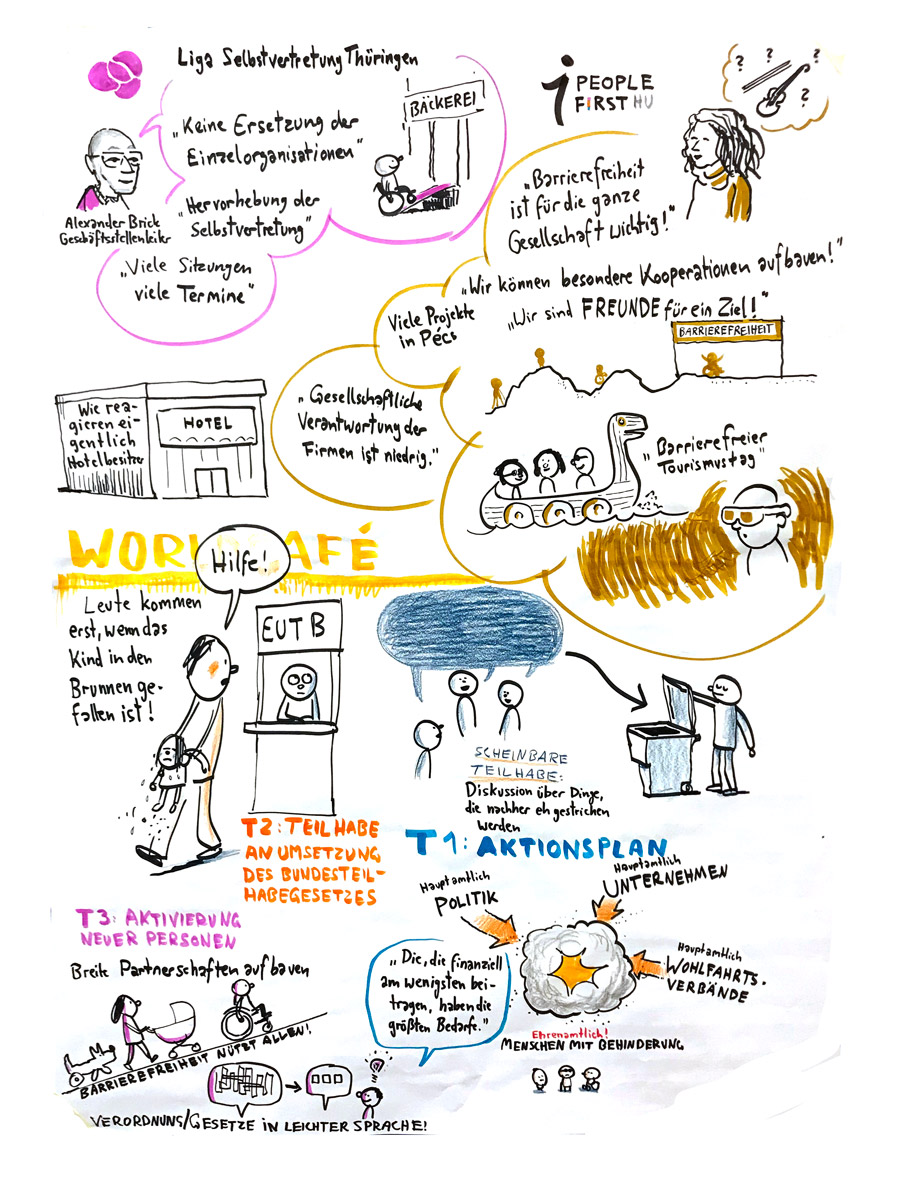 Liga Selbstvertretung Thüringen
„Keine Ersetzung der
Einzelorganisationen"
„Hervorhebung der
Selbstvertretung"
„Viele Sitzungen
viele Termine"
Alexander Brick
Geschäftsstellenleiter
BÄCKEREI
i PEOPLE
FIRST HU
? ? ? ?
„Barrierefreiheit
ist für die ganze
Gesellschaft wichtig!"
„Wir können besondere Kooperationen aufbauen!"
„Wir sind FREUNDE für ein Ziel!"
Viele Projekte
in Pécs
BARRIEREFREIHEIT
„Gesellschaftliche
Verantwortung der
Firmen ist niedrig."
„Barrierefreier
Tourismustag"
Wie rea-
gieren ei-
gentlich
Hotelbesitzer
HOTEL
WORLDCAFÉ
Hilfe!
Leute kommen
erst, wenn das
Kind in den
Brunnen ge-
fallen ist!
EUTB
SCHEINBARE
TEILHABE:
Diskussion über Dinge,
die nachher eh gestrichen
werden
T2: TEILHABE
AN UMSETZUNG
DES BUNDESTEIL-
HABEGESETZES
T1: AKTIONSPLAN
Hauptamtlich
POLITIK
Hauptamtlich
UNTERNEHMEN
Hauptamtlich
WOHLFAHRTS-
VERBÄNDE
Ehrenamtlich!
MENSCHEN MIT BEHINDERUNG
„Die, die finanziell
am wenigsten bei-
tragen, haben die
größten Bedarfe."
T3: AKTIVIERUNG
NEUER PERSONEN
Breite Partnerschaften aufbauen
BARRIEREFREIHEIT NÜTZT ALLEN!
VERORDNUNG/GESETZE IN LEICHTER SPRACHE!